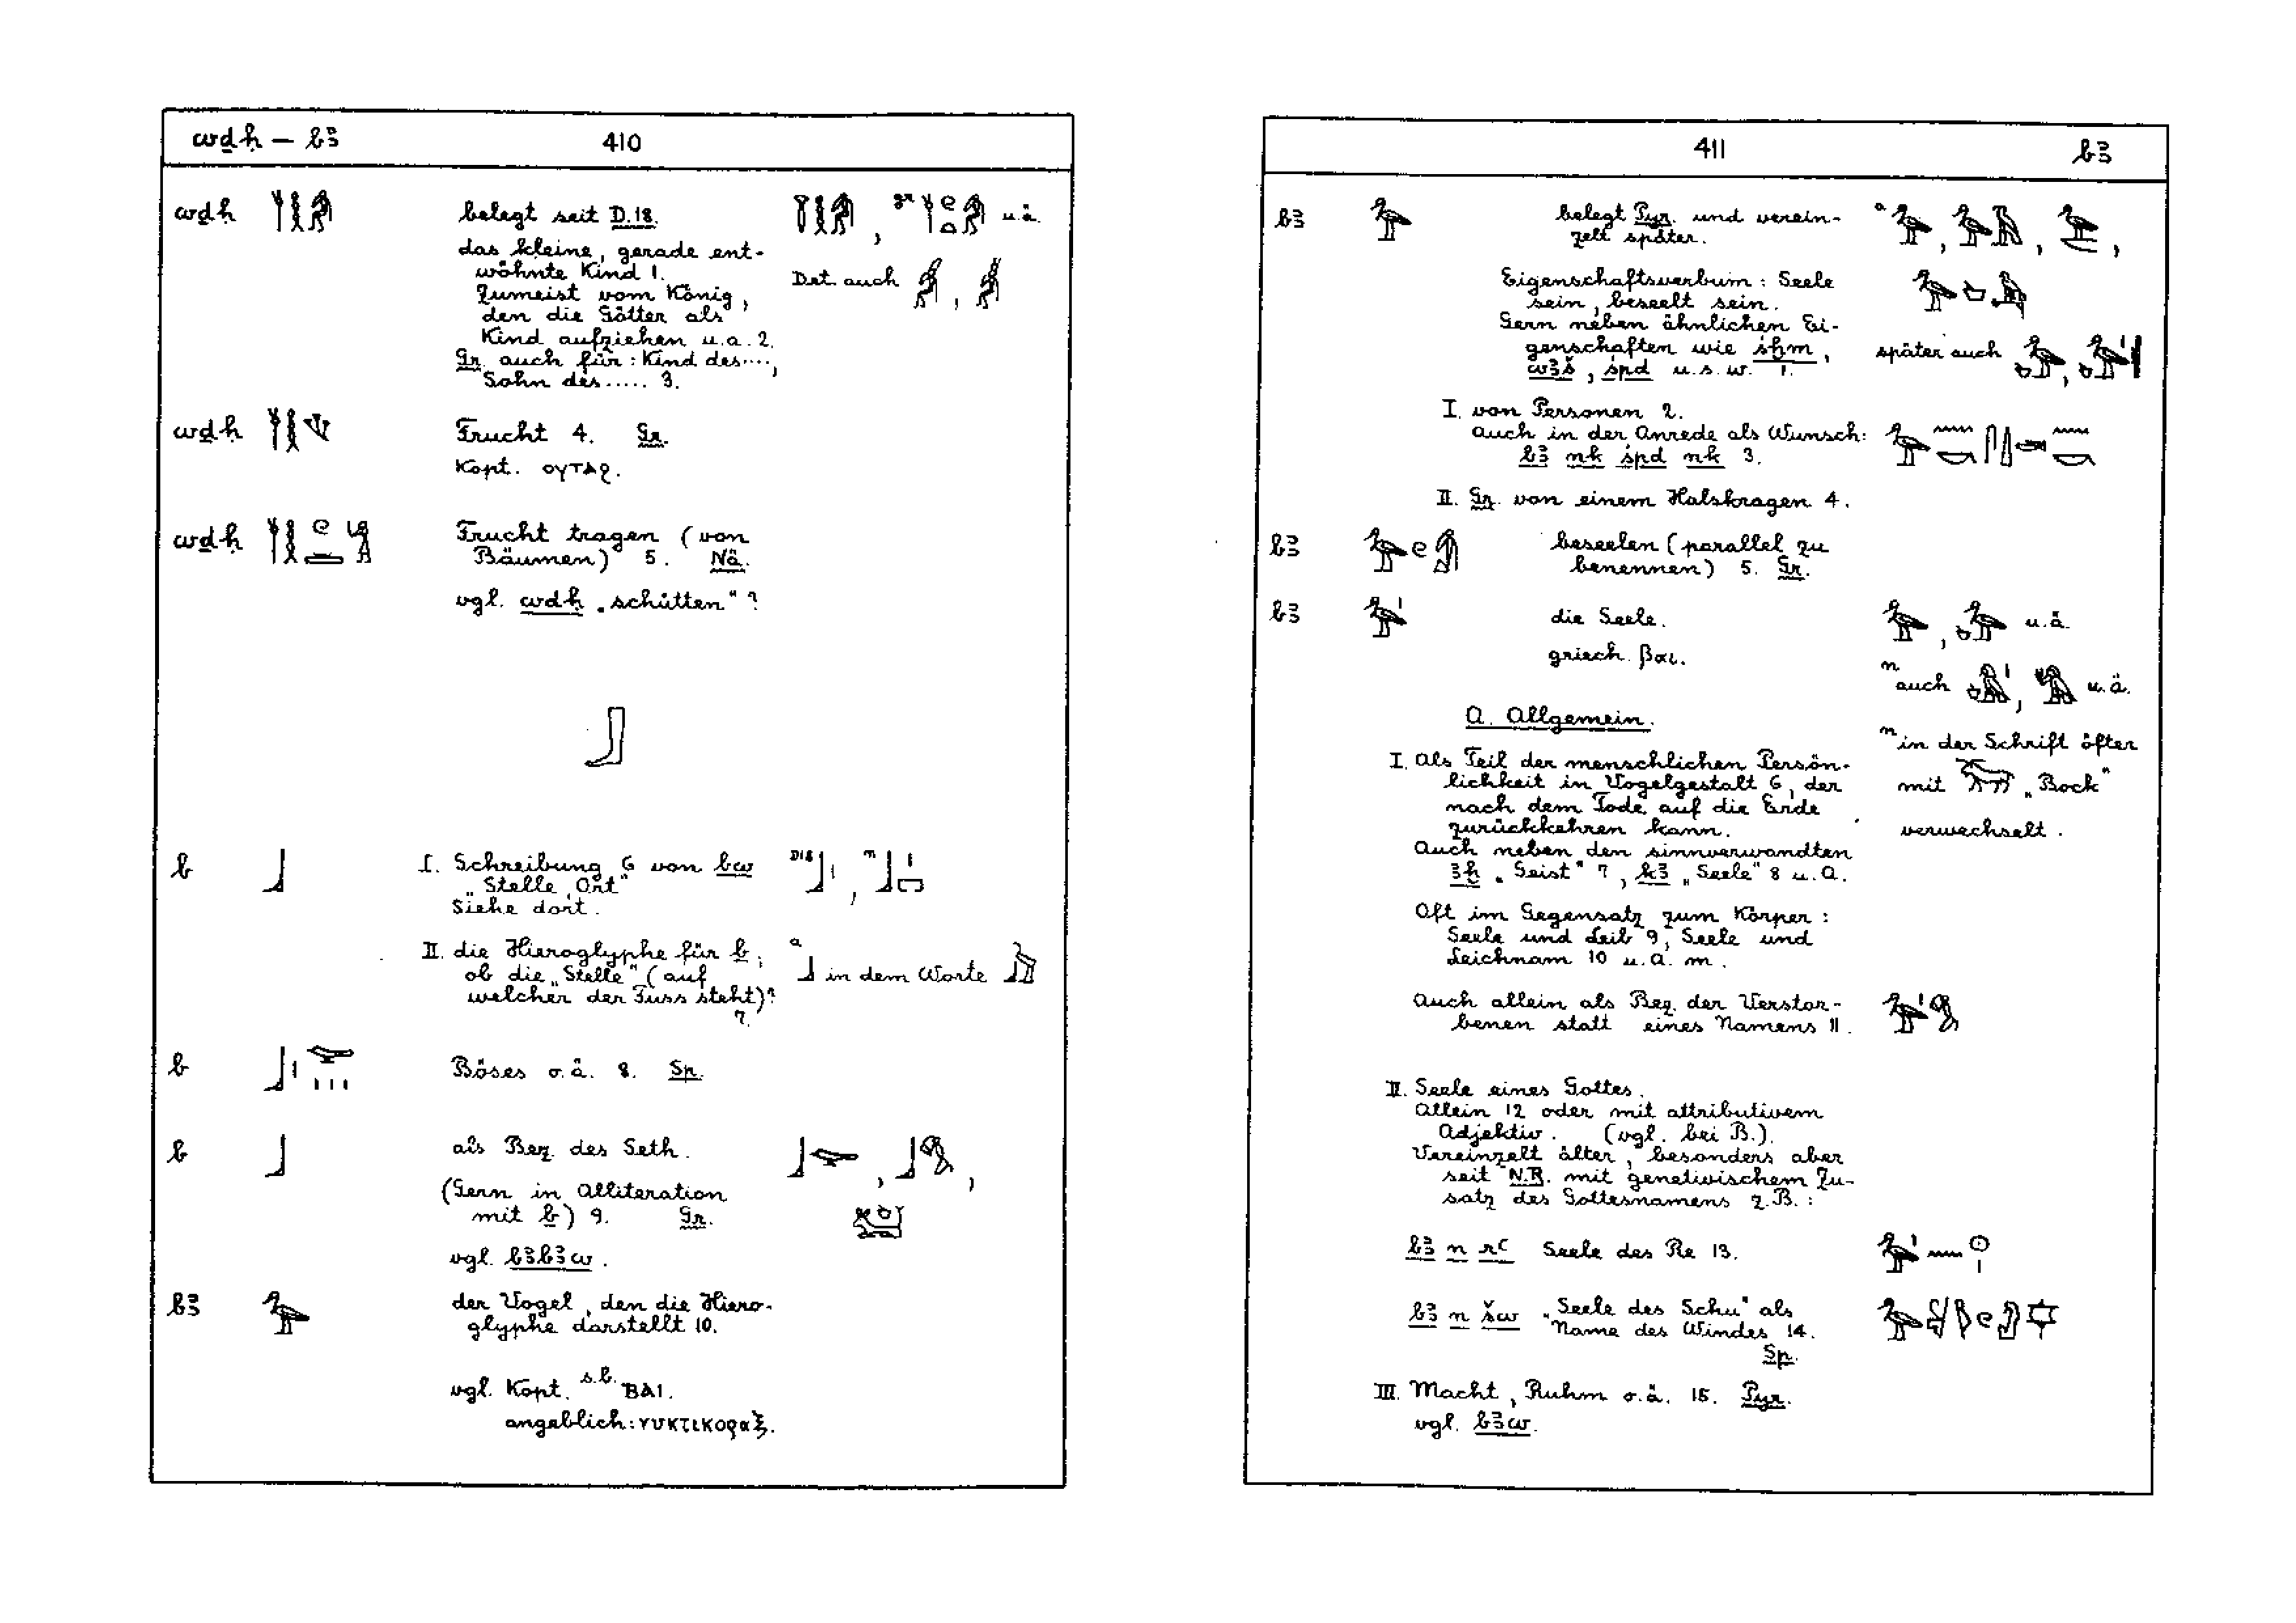 wdḥ — bꜣ 410
wdḥ belegt seit D.18.
gr u.ä.
das kleine, gerade ent-
wöhnte Kind 1.
Det. auch
Zumeist vom König,
den die Götter als
Kind aufziehen u.a. 2.
Gr. auch für: Kind des....,
Sohn des..... 3.
wdḥ Frucht 4. Gr.
Kopt. ⲟⲩⲧⲁϩ.
wdḥ Frucht tragen (von
Bäumen) 5. Nä.
vgl. wdḥ „schütten“?
b I. Schreibung 6 von bw
„Stelle, Ort“
Siehe dort.
D18 n
II. die Hieroglyphe für b;
ob die „Stelle“ (auf
welcher der Fuss steht)?
7.
a in dem Worte
b Böses o.ä. 8. Sp.
b als Bez. des Seth.
(Gern in Alliteration
mit b) 9. Gr.
vgl. bꜣbꜣw.
bꜣ der Vogel, den die Hiero-
glyphe darstellt 10.
vgl. Kopt. s.b. ⲃⲁⲓ.
angeblich: νυκτικοραξ.
411 bꜣ
bꜣ belegt Pyr. und verein-
zelt später.
a
Eigenschaftsverbum: Seele
sein, beseelt sein.
Gern neben ähnlichen Ei-
genschaften wie śḫm,
wꜣš, śpd u.s.w. 1.
später auch
I. von Personen 2.
auch in der Anrede als Wunsch:
bꜣ nk śpd nk 3.
II. Gr. von einem Halskragen 4.
bꜣ beseelen (parallel zu
benennen) 5. Gr.
bꜣ die Seele.
u.ä.
griech. βαι.
n auch u.ä.
A. Allgemein.
n in der Schrift öfter
mit „Bock“
verwechselt.
I. Als Teil der menschlichen Persön-
lichkeit in Vogelgestalt 6, der
nach dem Tode auf die Erde
zurückkehren kann.
Auch neben den sinnverwandten
ꜣḫ „Geist“ 7, kꜣ „Seele“ 8 u.a.
Oft im Gegensatz zum Körper:
Seele und Leib 9, Seele und
Leichnam 10 u.a.m.
Auch allein als Bez. der Verstor-
benen statt eines Namens 11.
II. Seele eines Gottes.
Allein 12 oder mit attributivem
Adjektiv. (vgl. bei B.).
Vereinzelt älter, besonders aber
seit N.R. mit genetivischem Zu-
satz des Gottesnamens z.B.:
bꜣ n rꜥ Seele des Re 13.
bꜣ n šw „Seele des Schu“ als
Name des Windes 14.
Sp.
III. Macht, Ruhm o.ä. 15. Pyr.
vgl. bꜣw.